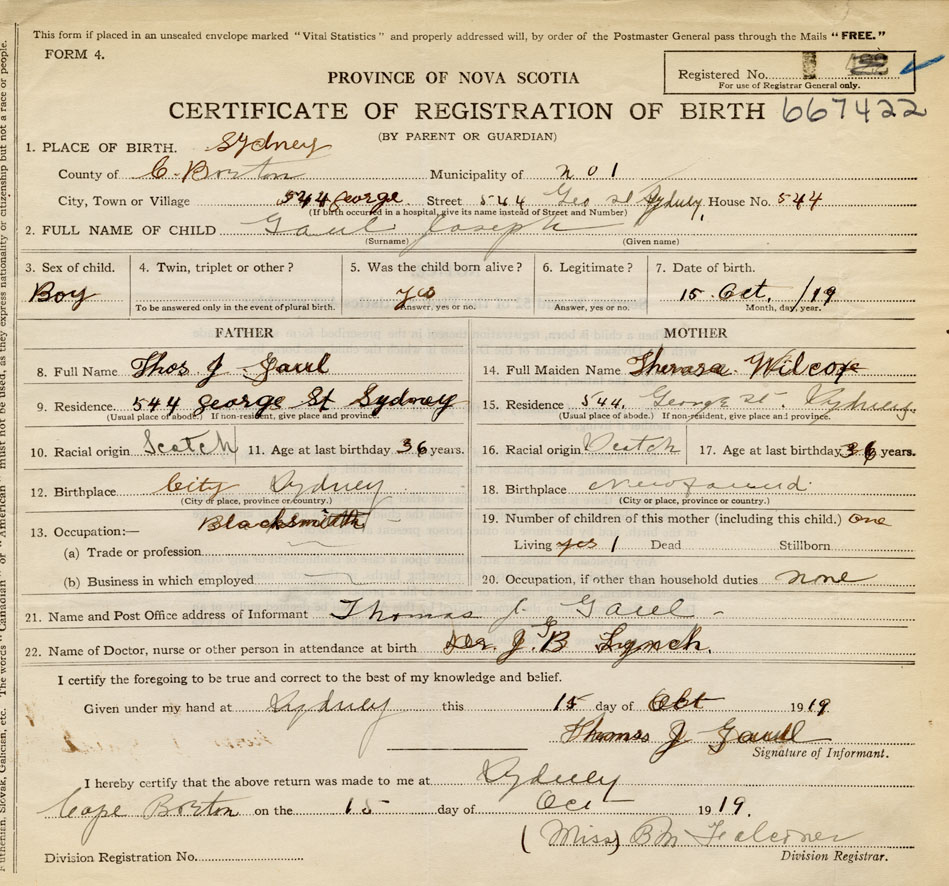 This form if placed in an unsealed envelope marked "Vital Statistics" and properly addressed will, by order of the Postmaster General pass through the Mails "FREE."
FORM 4.
Registered No.
For use of Registrar General only.
PROVINCE OF NOVA SCOTIA
CERTIFICATE OF REGISTRATION OF BIRTH 667422
(BY PARENT OR GUARDIAN)
1. PLACE OF BIRTH. Sydney
County of C. Breton Municipality of No 1
City, Town or Village 544 george Street 544 Geo St Sydney House No. 544
(If birth occurred in a hospital, give its name instead of Street and Number)
2. FULL NAME OF CHILD Gaul Joseph
(Surname) (Given name)
3. Sex of child. 4. Twin, triplet or other? 5. Was the child born alive? 6. Legitimate? 7. Date of birth.
Boy yes 15 Oct. /19
To be answered only in the event of plural birth. Answer, yes or no. Answer, yes or no. Month, day, year.
FATHER MOTHER
8. Full Name Thos J Gaul 14. Full Maiden Name Theresa Wilcox
9. Residence. 544 george St Sydney 15. Residence 544. George st. Sydney
(Usual place of abode.) If non-resident, give place and province. (Usual place of abode.) If non-resident, give place and province.
10. Racial origin Scotch 11. Age at last birthday 36 years. 16. Racial origin 17. Age at last birthday 36 years.
12. Birthplace City Sydney 18. Birthplace Newfound
(City or place, province or country.) (City or place, province or country.)
13. Occupation:— Blacksmith 19. Number of children of this mother (including this child.) one
(a) Trade or profession Living yes 1 Dead Stillborn
(b) Business in which employed 20. Occupation, if other than household duties none
21. Name and Post Office address of Informant Thomas J. Gaul
22. Name of Doctor, nurse or other person in attendance at birth Dr. J. B Lynch.
I certify the foregoing to be true and correct to the best of my knowledge and belief.
Given under my hand at Sydney this 15 day of Oct 1919
Thomas J Gaul
Signature of Informant.
I hereby certify that the above return was made to me at Sydney
Cape Breton on the 15 day of Oct 1919.
(Miss) B M Falconer
Division Registrar No. Division Registrar.